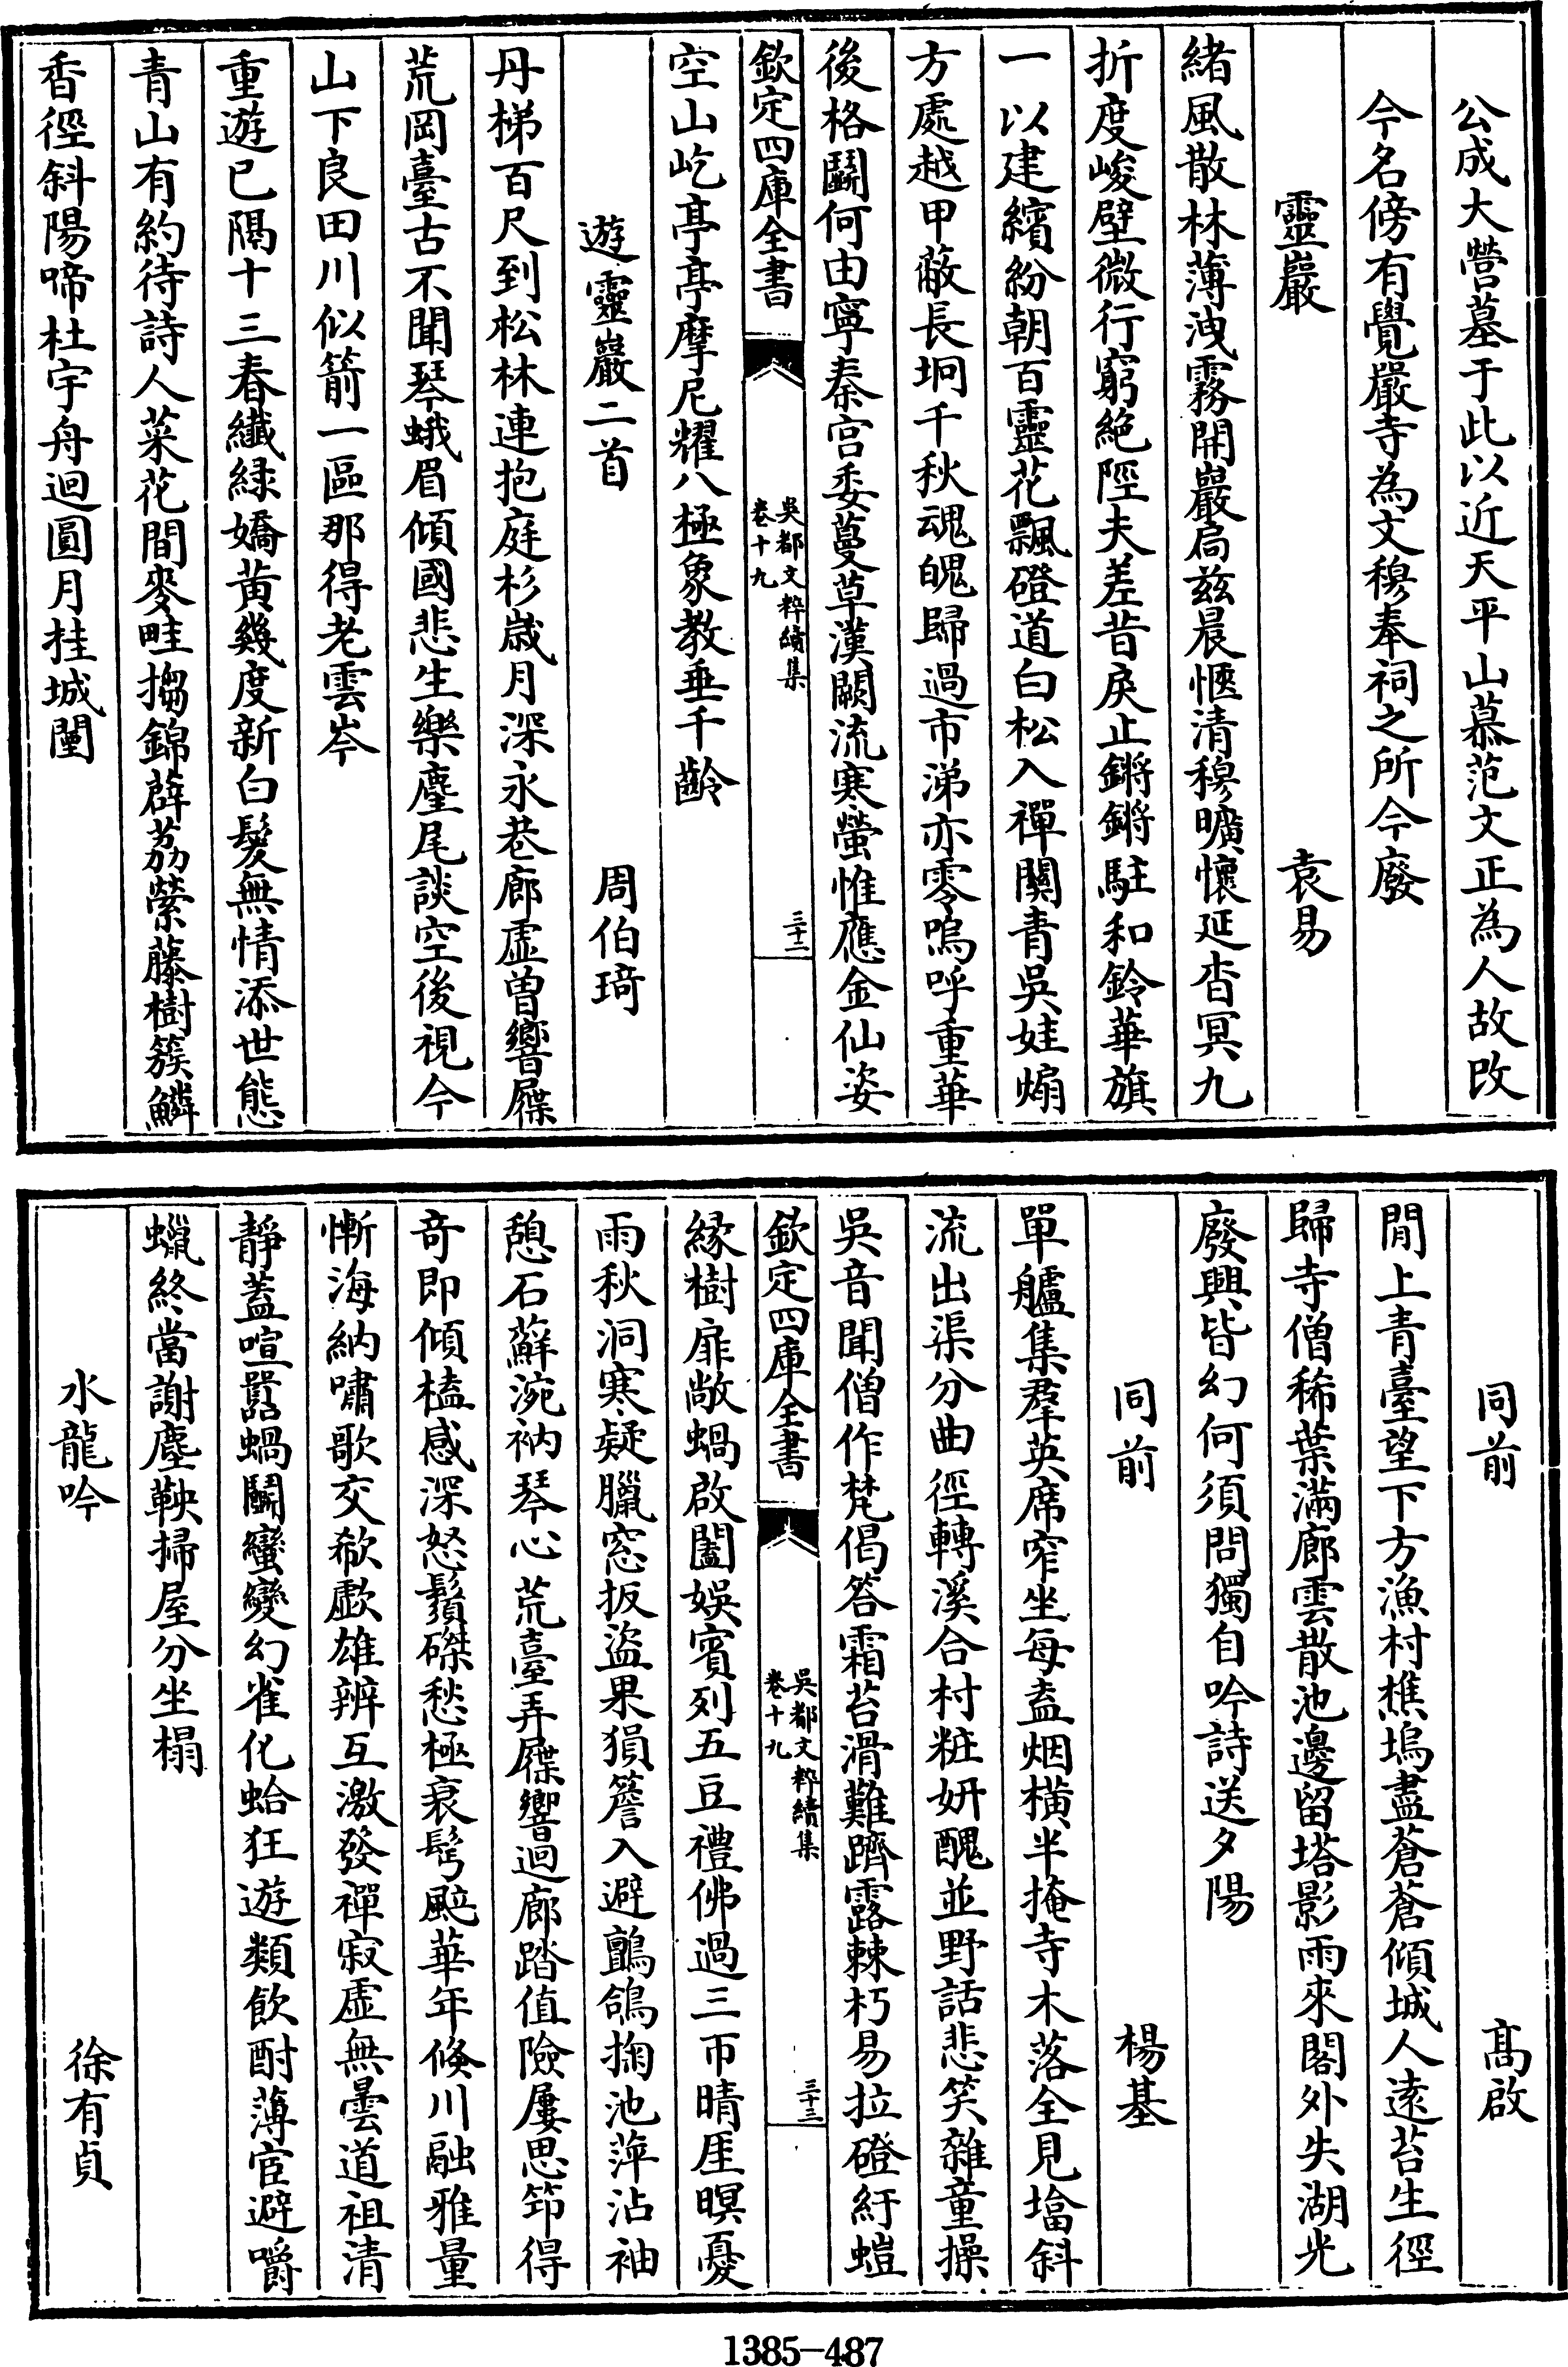 公成大營墓于此以近天平山慕范文正為人故改
今名傍有覺嚴寺為文穆奉祠之所今廢
靈巖 袁易
緒風散林薄洩霧開巖扃兹晨愜清穆曠懷延杳冥九
折度峻壁微行窮絶陘夫差昔戾止鏘鏘駐和鈴華旗
一以建繽紛朝百靈花飄磴道白松入禪關青吳娃煽
方處越甲蔽長坰千秋魂魄歸過市涕亦零嗚呼重華
後格鬭何由寧秦宫委蔓草漢闕流寒螢惟應金仙姿
欽定四庫全書 吳都文粹續集 卷十九 三十二
空山屹亭亭摩尼耀八極象教垂千齡
遊靈巖二首 周伯琦
丹梯百尺到松林連抱庭杉歳月深永巷廊虚曽響屧
荒岡臺古不聞琴蛾眉傾國悲生樂麈尾談空後視今
山下良田川似箭一區那得老雲岑
重遊已隔十三春纎緑嬌黄幾度新白髪無情添世態
青山有約待詩人菜花間麥畦搊錦薜荔縈藤樹簇鱗
香徑斜陽啼杜宇舟迴圓月挂城闉
同前 髙啟
閒上青臺望下方漁村樵塢盡蒼蒼傾城人逺苔生徑
歸寺僧稀葉滿廊雲散池邊留塔影雨來閣外失湖光
廢興皆幻何須問獨自吟詩送夕陽
同前 楊基
單艫集羣英席窄坐每盍烟橫半掩寺木落全見墖斜
流出渠分曲徑轉溪合村粧妍醜並野話悲笑雜童操
吳音聞僧作梵偈答霜苔滑難躋露棘朽易拉磴紆螘
欽定四庫全書 吳都文粹續集 卷十九 三十三
緣樹扉敞蝸啟闔娛賓列五豆禮佛過三帀晴厓暝憂
雨秋洞寒疑臘窓扳盜果猿簷入避鸇鴿掬池萍沾袖
憩石蘚涴衲琴心荒臺弄屧響迴廊踏值險屢思笻得
竒即傾榼感深怒鬚磔愁極衰髩颭華年倏川融雅量
慚海納嘯歌交欷歔雄辨互激發禪寂虚無曇道祖清
靜蓋喧囂蝸鬭蠻變幻雀化蛤狂遊類飲酎薄宦避嚼
蠟終當謝塵鞅掃屋分坐榻
水龍吟 徐有貞
1385-487